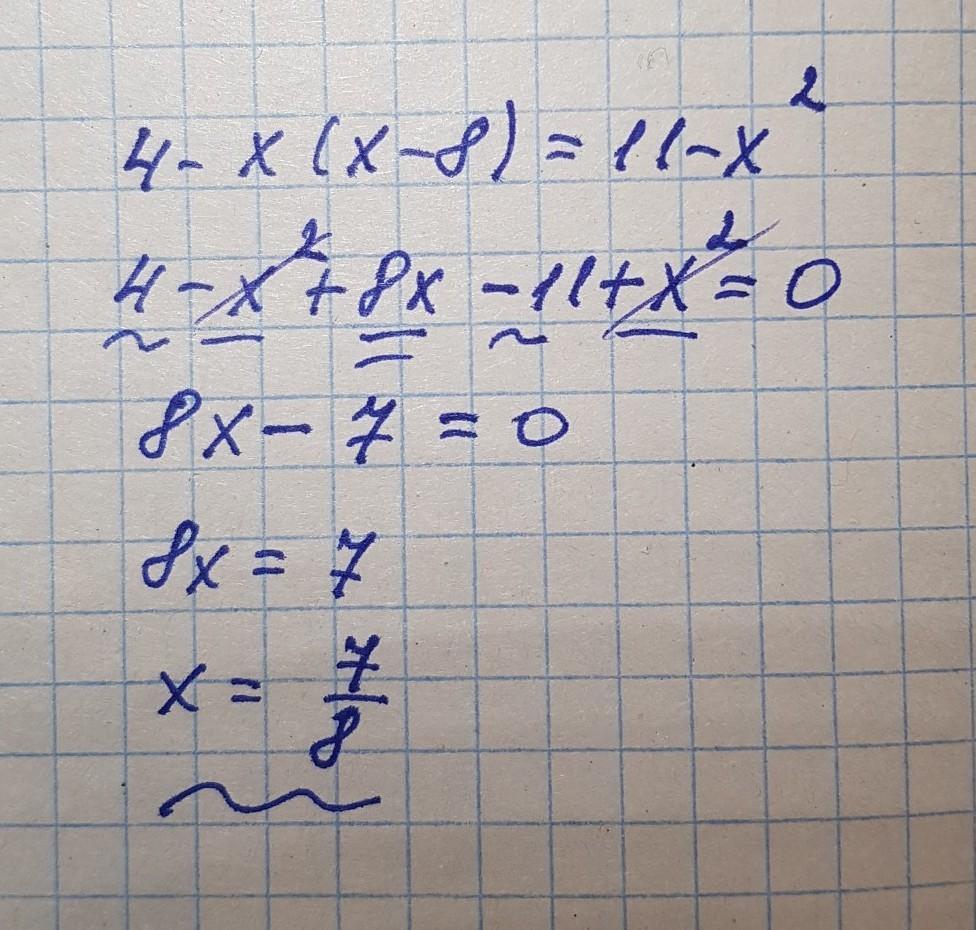 4 - x (x - 8) = 11 - x²
4 - x² + 8x - 11 + x² = 0
8x - 7 = 0
8x = 7
x = 7/8